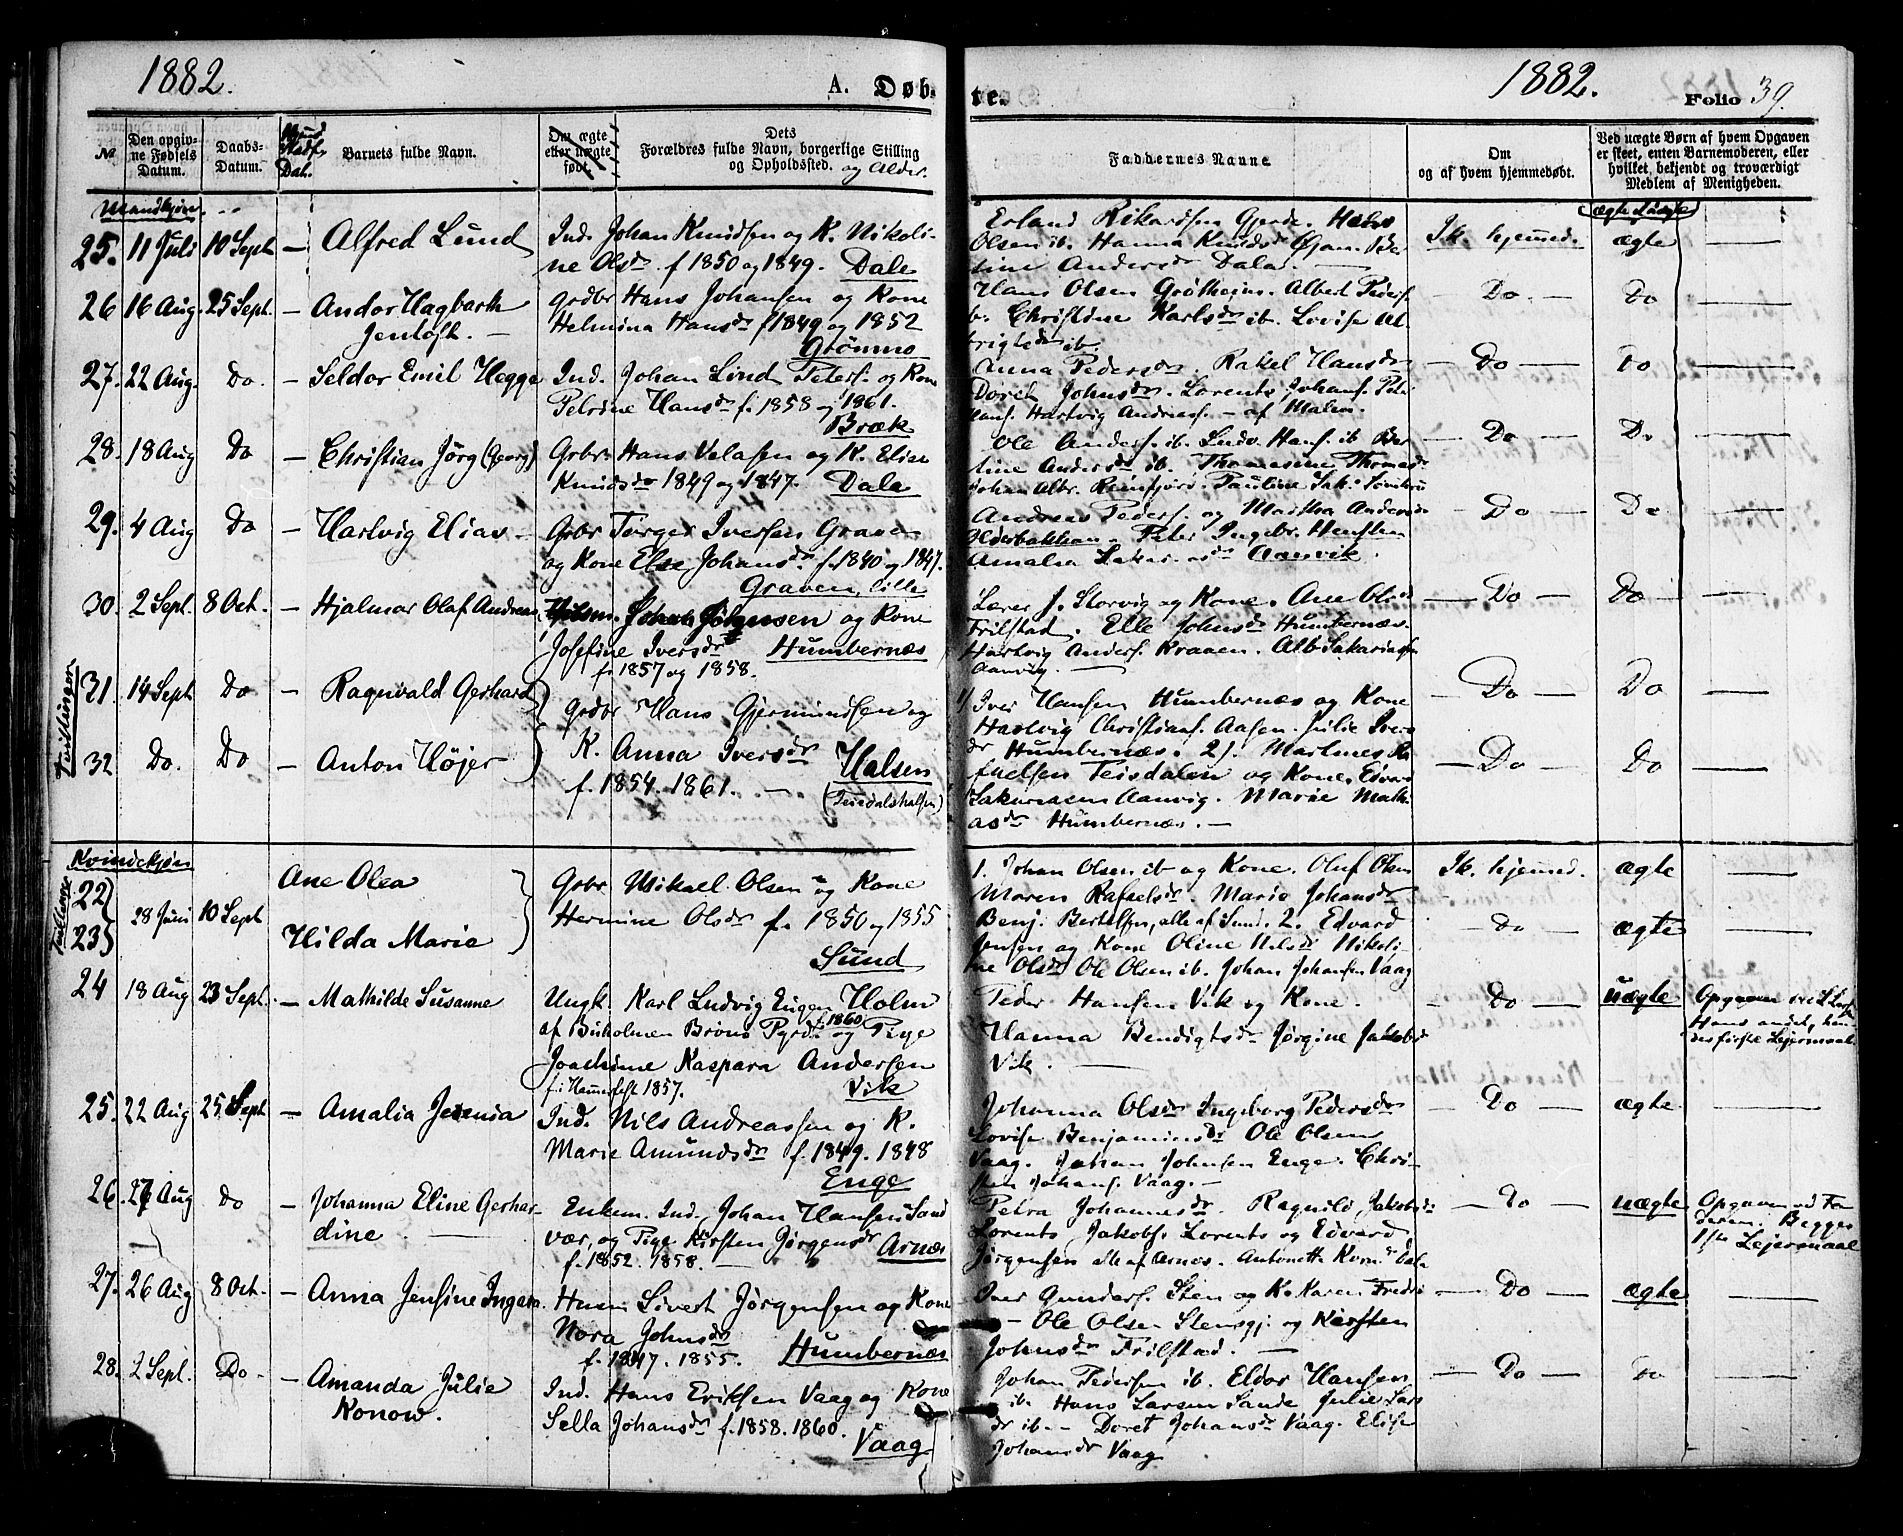 1882.
A. Døb-
te.
1882.
Folio 39.
№
Den opgiv-
ne Fødsels
Datum.
Daabs-
Datum.
Barnets fulde Navn.
Om ægte
eller uægte
født.
Dets
Forældres fulde Navn, borgerlige Stilling
og Opholdssted. og Alder.
Faddernes Navne
Om
og af hvem hjemmedøbt.
Ved uægte Børn af hvem Opgaven
er skeet, enten Barnemoderen, eller
hvilket, bekjendt og troværdigt
Medlem af Menigheden.
Mandkjøn.
25. 11 Juli 10 Sept. — Alfred Lund
Ind. Johan Knudsen og K. Nikoli-
ne Olsdr. f 1850 og 1849. Dale
Erland Rikardsen Gjerde. Hans
Olsen ib. Hanna Knudsdr
tine Andersdr Dala. —
Ik. hjemmed. ægte
26 16 Aug. 25 Sept. — Andor Hagbarth
Jentoft. —
Grdbr Hans Johansen og Kone
Helmina Hansdr f 1849 og 1852
Grønmo
Hans Olsen Grøtheim. Albert Peders.
Christine Karlsdr ib. Lovise
— Do. — Do
27. 22 Aug. Do. — Seldor Emil Hegge
Ind. Johan Lind Peters. og Kone
Petrine Hansdr f. 1858 og 1861.
Bræk
Anna Pedersdr. Rakel Hansdr
Doret Johnsdr. Lorents Johans.
Hans. Hartvig Andreas. — af Malm.
— Do — Do
28. 18 Aug Do — Christian Jörg (Georg)
Grbr Hans Velasen og K. Elise
Knudsdr 1849 og 1847. Dale
Ole Anders. ib. Ludv. Hans. ib
tine Andersdr ib. Thomasine Thomasdr
— Do — Do
29. 4 Aug Do — Hartvig Elias —
Grbr Torger Iversen Graven
og Kone Else Johansdr f. 1840 og 1847.
Graven, lille
Andreas Peders. og Martha Andersdr
Olderbakken. Peter Ingebr.
Amalia Aanvik.
— Do — Do
30. 2 Sept. 8 Oct. — Hjalmar Olaf Andreas
Johan Jörgensen og Kone
Josefine Iversdr Humbernæs
f. 1857 og 1858.
Lærer J. Storvig og Kone. Ane Olsdr
Frilstad. Elle Johnsdr Humbernæs.
Hartvig Anders. Kraaen. Alb. Sakariasen
Aanvig. —
— Do — Do
Tvillinger
31. 14 Sept Do — Ragnvald Gerhard
32 Do. Do — Anton Højer
Grdbr Hans Gjermundsen og
K. Anna Iversdr Halsen
f. 1854. 1861. — (Tusdalshalsen)
1/ Iver Hansen Humbernæs og Kone
Hartvig Christians. Aasen. Julie Ivers
dr Humbernæs. 2/. Martines Ra
faelsen Teisdalen og Kone. Edvar
Sakariasen Aanvig. Marie Mathi-
asdr Humbernæs. —
— Do — Do
— Do — Do
Kvindekjøn
Tvillinger
22
23
28 Juni 10 Sept
Ane Olea
Hilda Marie
Grbr Mikael Olsen og Kone
Hermine Olsdr f. 1850 og 1855
Sund
1. Johan Olsen ib og Kone. Oluf Olsen
Maren Rafaelsdr. Marie Johansdr
Benj. Bertelsen, alle af Sund. 2. Edvard
Jensen og Kone Oline Nilsdr Nikoli-
ne Olsdr Ole Olsen ib. Johan Johansen Vaag
Ik. hjemmed. ægte
— Do — ægte
24 18 Aug 23 Sept. — Mathilde Susanne
Ungk. Karl Ludvig Eugen Holm
af Buholmen Brøns. f. 1860 og Pige
Joachime Kaspara Andersen
f. i Hammerfest 1857. Vik
Peder Hansen Vik og Kone.
Hanna Bendigtsdr Jørgine Jakobsdr
Vik. —
— Do — uægte
Opgaven
Hans andet, hen-
des første Lejermaal
25. 22 Aug 25 Sept — Amalia Jesenia
Ind. Nils Andreassen og K.
Marie Amundsdr f. 1849. 1848
Enge
Johanna Olsdr Ingeborg Pedersdr
Lovise Benjaminsdr Ole Olsen
Vaag. Johan Johnsen Enge. Chri-
sten Johans. Vaag. —
— Do — ægte
26. 27 Aug Do — Johanna Eline Gerhar-
dine. —
Enkem. Ind. Johan Hansen Sand
vær, og Pige Kirsten Jørgensdr Arnæs
f. 1852. 1858. —
Petra Johannesdr. Ragnild Jakobsdr
Lorents Jakobs. Lorents og Edvard
Jørgensen alle af Arnæs. Antonette Korn.dr Dala
— Do — uægte
Opgaven ved Fa
deren. Begges
1ste Lejermaal
27. 26 Aug 8 Oct. — Anna Jensine Ingera.
Husm Sivert Jørgensen og Kone
Nora Johnsdr Humbernæs
f. 1847. 1855.
Iver Gunders. Sten og K. Karen Fredri
— Ole Olsen Stensgj. og Kirsten
Johnsdr Frilstad. —
— Do — ægte
28. 2 Sept. Do — Amanda Julie
Konow.
Ind. Hans Eriksen Vaag og Kone
Sella Johansdr f. 1858. 1860.
Vaag
Johan Pedersen ib. Eldor Hansen
ib. Hans Larsen Sande Julie Lars
dr ib. — Doret Johansdr Vaag. Elise
Johansdr Vaag
— Do — Do